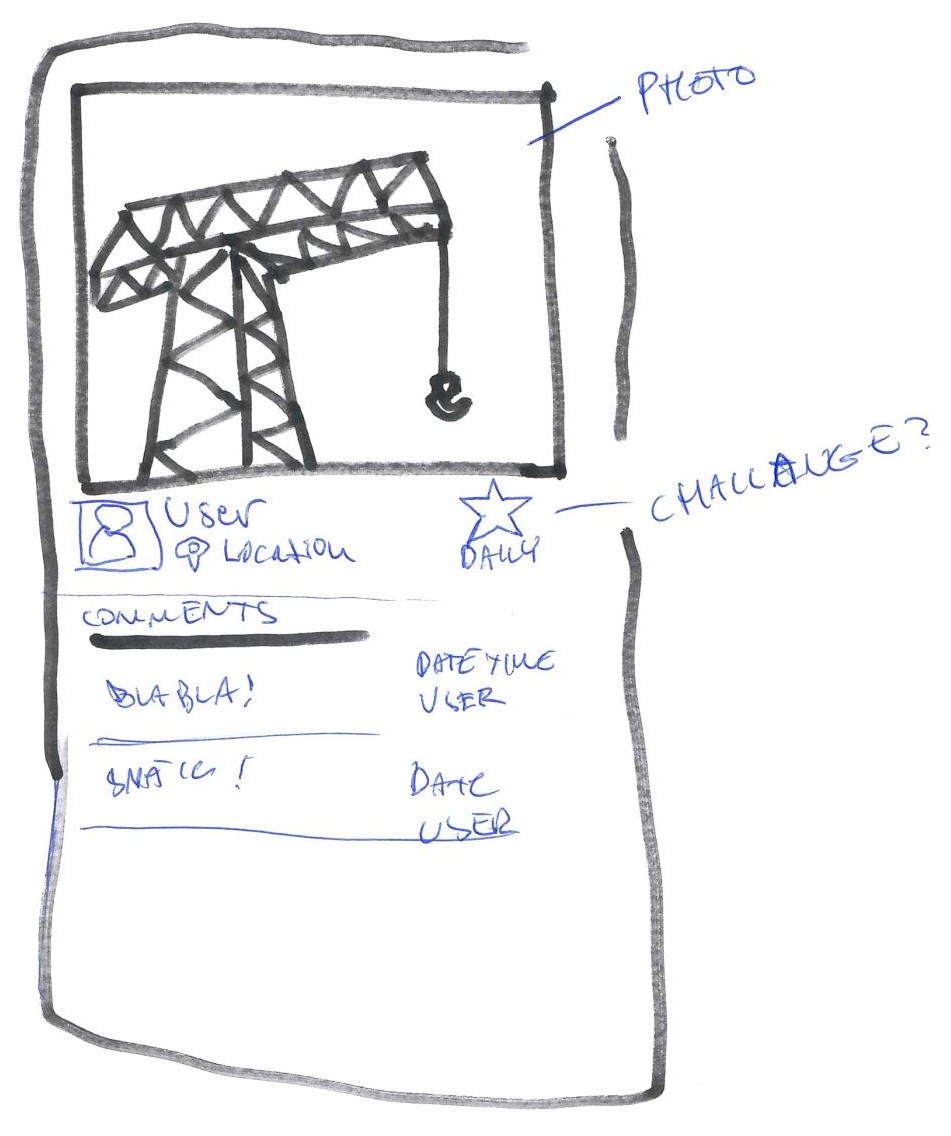 PHOTO
User
Location
DAILY
CHALLANGE?
COMMENTS
BLA BLA!
DATE TIME
USER
DATE
USER